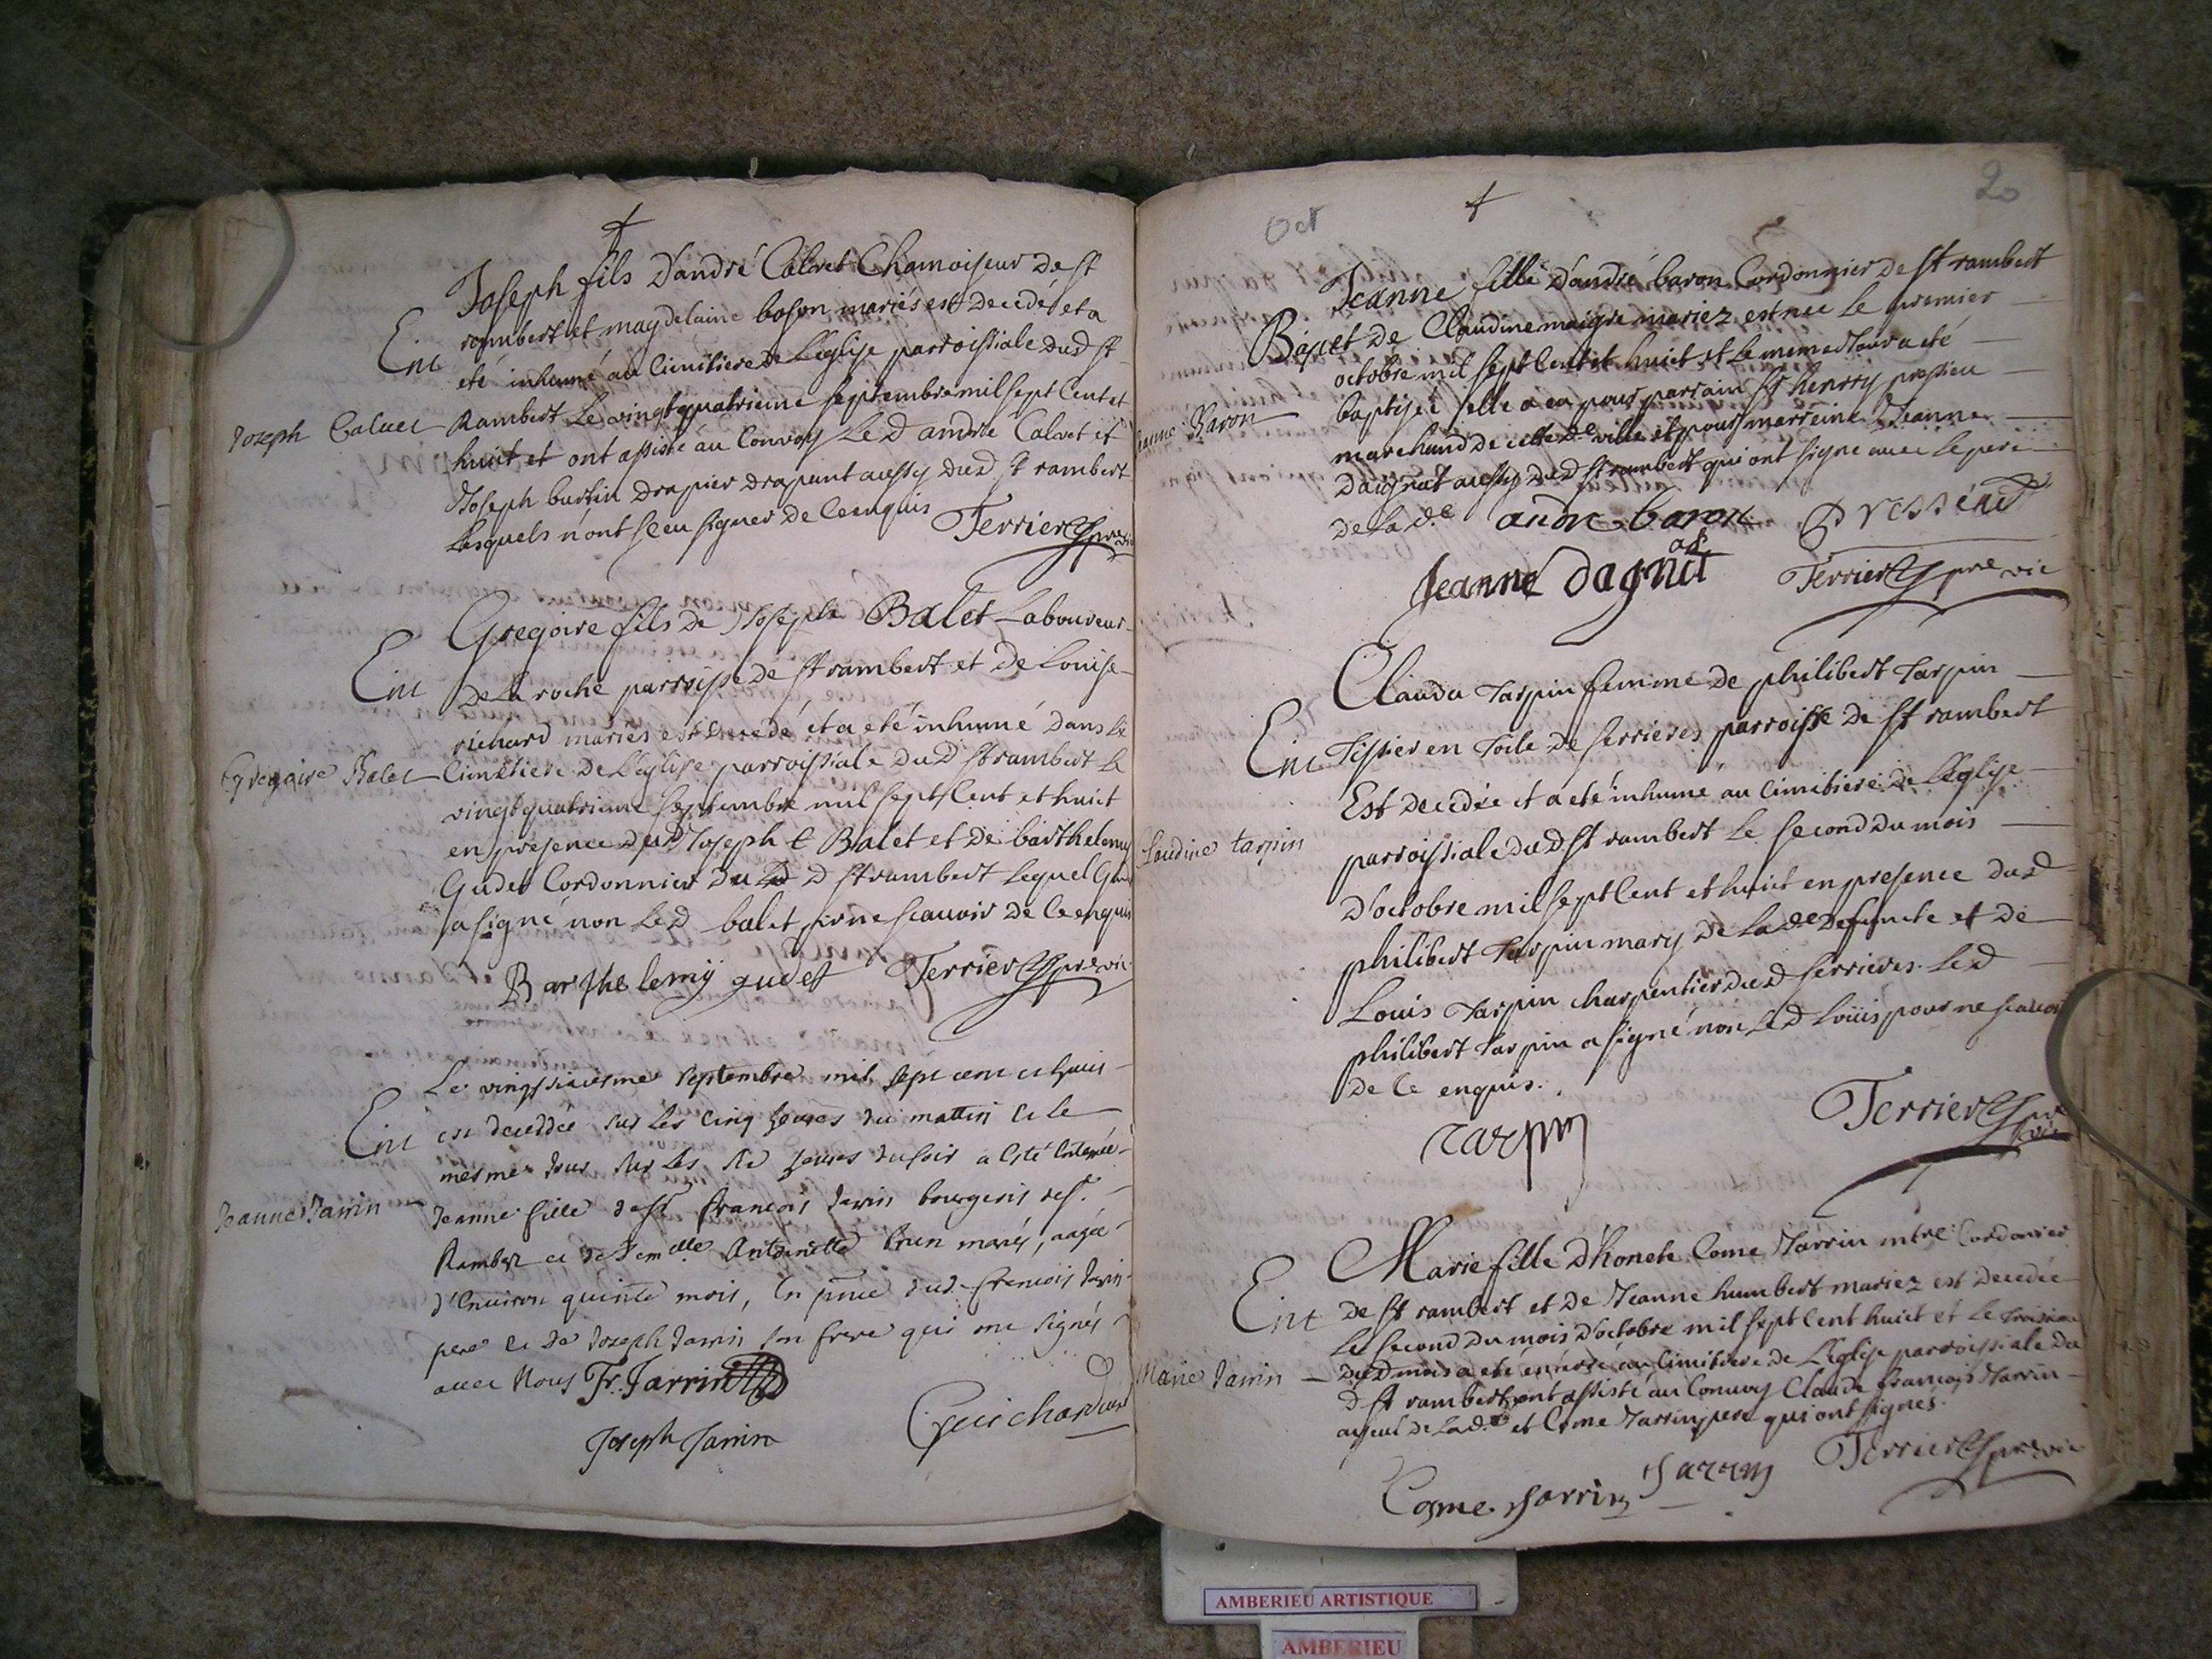 Joseph fils D'andré Calvet Chamoiseur de st
Ent rambert et magdelaine boson mariés est decedé et a
eté inhumé au Cimitiere de L'eglise parroissiale dud st
Joseph Caluet
Rambert Le vingt quatrieme septembre mil sept Cent et
huict et ont assisté au Convoy Le d andre Calvet et
Joseph burtin drapier drapant aussy dud st rambert
Lesquels n'ont sceu signer de Ce enquis Terrier pre vic
Gregoire fils de Joseph Balet Laboureur
Ent De La roche parroisse de st rambert et de Louise
richard mariés est decedé et a eté inhumé dans le
Gregoire Balet
Cimetiere de L'eglise parroissiale du d st rambert le
vingt quatrieme septembre mil sept Cent et huict
en presence du d Joseph Balet et de barthelemy
Gudet Cordonnier du d st rambert Lequel
a signé non Le d balet p ne scauoir de Ce enquis
Barthelemÿ gudet Terrier pre vic
Le vingtsixiesme septembre mil sept cent et huit
Ent est deceddée sur Les Cinq heures du mattin et le
mesme Jour sur Les six heures du soir a Esté Enterrée
Jeanne Jarrin
Jeanne fille de sr françois Jarrin bourgeois de st
Rambert et de Demelle Antoinette brun mariés, aagée
d'Enuiron quinze mois, En pnce dud francois Jarrin
pere et de Joseph Jarrin son frere qui ont signés
auec Nous Fr. Jarrin
Joseph Jarrin Guichard
Oct
20
Jeanne fille D'andré baron Cordonnier de st rambert
Bap et de Claudine maigre mariez est née le premier
octobre mil sept Cent et huict et Le meme Jour a eté
Jeanne Baron
baptisée elle a eu pour parrain sr henry pressieu
marchand de cette de ville et pour marreine Jeanne
Dagnat aussy du d st rambert qui ont signé auec le pere
de La de andre baron
Jeanne dagnat Terrier pre vic
Clauda tarpin femme de philibert tarpin
Ent tissier en toile de serrieres parroisse de st rambert
Est decedée et a eté inhumé au cimitiere de L'eglise
Claudine tarpin
parroissiale du d st rambert le second du mois
D'octobre mil sept Cent et huict en presence du d
philibert tarpin mary de La de defuncte et de
Louis tarpin charpentier du d serrieres Le d
philibert tarpin a signé non Le d Loüis pour ne scauoir
de Ce enquis.
tarpin Terrier pre vic
Marie fille D'honete Come Jarrin mtre Cordonier
Ent de st rambert et de Jeanne humbert mariez est decedée
Le second du mois d'octobre mil sept Cent huict et le troisieme
Marie Jarrin
dud mois a eté enterré au Cimitiere de L'eglise parroissiale du
d st rambert ont assisté au Convoy Claude francois Jarrin
ayeul de La de et Come Jarrin pere qui ont signés
Cosme Jarrin Jarrin Terrier pre vic
AMBERIEU ARTISTIQUE
AMBERIEU